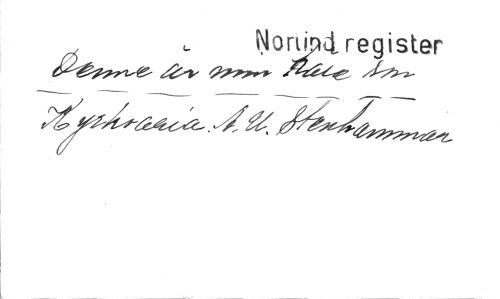 Norlind register
Denne är min kära son
Kyrkoaria. A. U. Stenhammar